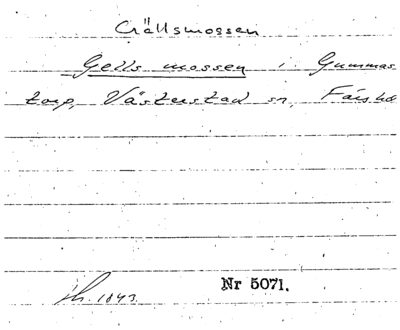 Gällsmossen
Gells mossen i Gummas
torp, Västerstad sn, Färs hd
1843.
Nr 5071.